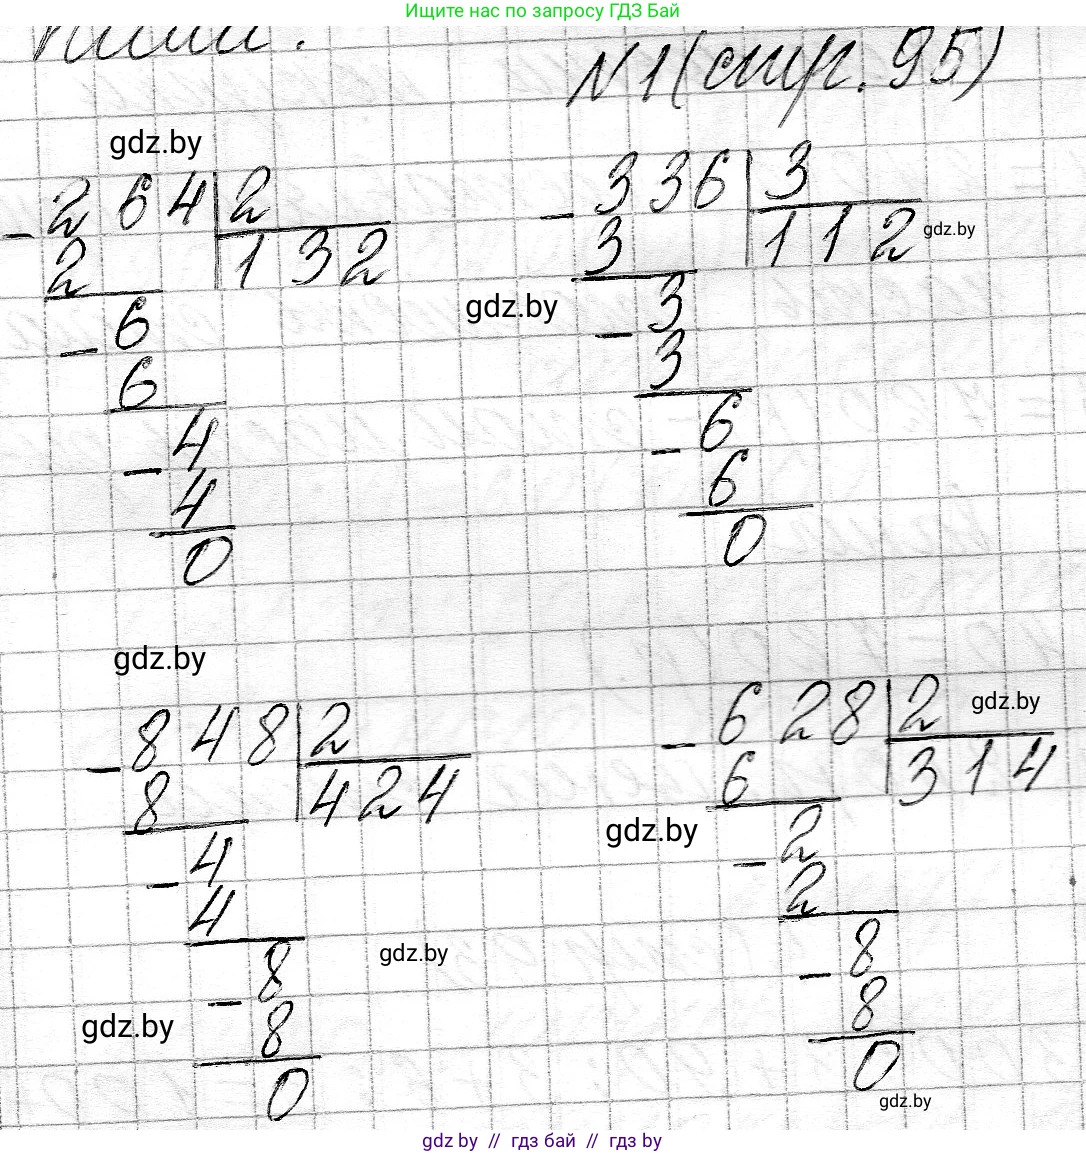 Ищите нас по запросу ГДЗ Бай
N1 (стр. 95)
gdz.by
- 264 | 2
2 | 132
- 6
6
- 4
4
0
- 336 | 3
3 | 112
gdz.by
gdz.by
- 3
3
- 6
6
0
gdz.by
- 848 | 2
8 | 424
- 4
4
- 8
8
0
- 628 | 2
6 | 314
gdz.by
gdz.by
- 2
2
- 8
8
0
gdz.by
gdz.by
gdz.by
gdz by // гдз бай // гдз by